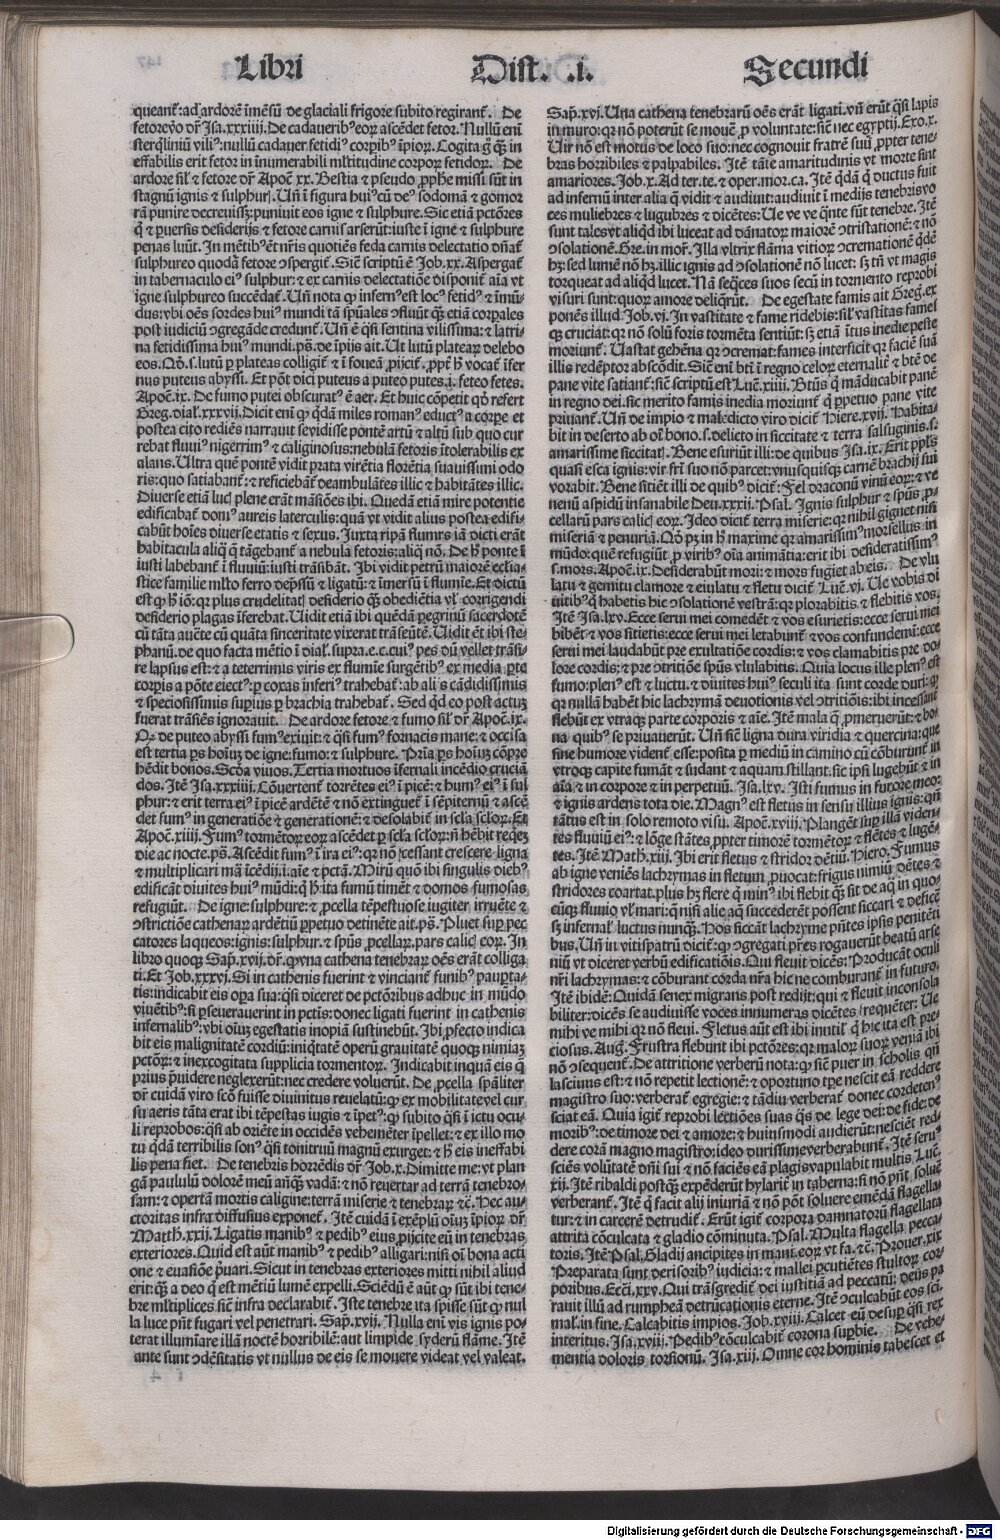 Libri Dist. .i. Secundi
queant᷑: ad ardorē īmēsū de glaciali frigore subito regirant᷑. De
fetore v̄o dr̄ Isa.xxxiiii. De cadaueribꝰ eoꝝ ascēdet fetor. Nullū eni
sterq̄liniū vilíꝰ: nullū cadauer fetidíꝰ corꝑibꝰ īpioꝝ. Cogita g̊ qͣʒ in
effabilis erit fetor in īnumerabili ml̄titudine corpoꝝ fetidoꝝ. De
ardore sil̓ ⁊ fetore dr̄ Apoc̄ xx. Bestia ⁊ pseudo ꝓphe missi sūt in
stagnū ignis ⁊ sulphur. Uñ ī figura huíꝰ cū deꝰ sodomā ⁊ gomor
rā punire decreuissʒ: puniuit eos igne ⁊ sulphure. Sic etiā pctōres
penas luūt. In mētibꝰ ēt nr̄is quotiēs feda carnis delectatio dn̄at᷑
sulphureo quodā fetore ꝯspergit᷑. Sic̄ scriptū ē Job.xx. Aspergat᷑
in tabernaculo eíꝰ sulphur: ⁊ ex carnis delectatiōe disponit᷑ aīa vt
igne sulphureo succēdat᷑. Uñ nota ꝙ infernꝰ est locꝰ fetidꝰ ⁊ īmū
dus: vbi oēs sordes huíꝰ mundi tā spūales ꝯfluūt qͣʒ etiā corꝑales
post iudiciū ꝯgregāde credunt᷑. Uñ ē q̄si sentina vilissima: ⁊ latri
na fetidissima huíꝰ mundi. ps̄. de īpijs ait. Ut lutū plateaꝝ delebo
eos. Qd̄.s. lutū ꝑ plateas colligit᷑ ⁊ ī foueā ꝓijcit᷑, ꝓpt̄ h̄ vocat᷑ īfer
nus puteus abyssi. Et pōt dici puteus a puteo putes.i. feteo fetes.
Apoc̄.ix. De fumo putei obscuratꝰ ē aer. Et huic cōpetit qd̄ refert
Greg. dial.xxxvii. Dicit eni ꝙ qͥdā miles romanꝰ eductꝰ a corꝑe et
postea cito rediēs narrauit se vidisse pontē artū ⁊ altū sub quo cur
rebat fluuíꝰ nigerrimꝰ ⁊ caliginosus: nebulā fetoris ītolerabilis ex
alans. Ultra quē pontē vidit prata virētia florētia suauissimi odo
ris: quo satiabant᷑: ⁊ reficiebāt᷑ deambulātes illic ⁊ habitātes illic.
Diuerse etiā lucꝭ plene erāt māsiōes ibi. Quedā etiā mire potentie
edificabāt᷑ domꝰ aureis laterculis: quā vt vidit alius postea edifi
cabūt hoīes diuerse etatis ⁊ sexus. Juxta ripā flumīs iā dicti erāt
habitacula aliq̄ q̄ tāgebant᷑ a nebula fetoris: aliq̄ nō. De h̄ ponte ī
iusti labebant᷑ ī fluuiū: iusti trāsibāt. Ibi vidit petrū maiorē ecclia
stice familie ml̄to ferro dep̄ssū ⁊ ligatū: ⁊ īmersū ī flumīe. Et dictū
est qꝛ h̄ iō: qꝛ plus crudelitatꝭ desiderio qͣʒ obediētia vl̓ corrigendi
desiderio plagas īferebat. Uidit etiā ibi quēdā ꝑegrinū sacerdotē
cū tāta aucte cū quāta sinceritate vixerat trāseūtē. Uidit ēt ibi ste
phanū. de quo facta mētio ī dial̓. supra.e.c. cuíꝰ pes dū vellet trāsi
re lapsus est: ⁊ a teterrimis viris ex flumīe surgētibꝰ ex media ꝑte
corꝑis a pōte eiectꝰ: ꝑ coxas inferíꝰ trahebat᷑: ab alijs cādidissimis
⁊ speciosissimis suꝑius ꝑ brachia trahebat᷑. Sed qͥd eo post actuʒ
fuerat trāsiēs ignorauit. De ardore fetore ⁊ fumo sil̓ dr̄ Apoc̄.ix.
Qꝛ de puteo abyssi fumꝰ exiuit: ⁊ q̄si fumꝰ fornacis mane: ⁊ occisa
est tertia ꝑs hoīuʒ de igne: fumo: ⁊ sulphure. Pria ꝑs hoīuʒ cōpre
hēdit bonos. Scd̄a viuos. Tertia mortuos īfernali incēdio crucia
dos. Itē Isa.xxxiiii. Cōuertent᷑ torrētes eíꝰ ī picē: ⁊ humꝰ eíꝰ ī sul
phur: ⁊ erit terra eíꝰ ī picē ardētē ⁊ nō extinguet᷑ ī sēpiternū ⁊ ascē
det fumꝰ in generatiōe ⁊ generationē: ⁊ desolabit᷑ in scl̄a scl̄oꝝ. Et
Apoc̄.xiiii. Fumꝰ tormētoꝝ eoꝝ ascēdet ꝑ scl̄a scl̄oꝝ: ñ hēbit requieʒ
die ac nocte. ps̄. Ascēdit fumꝰ ī ira eíꝰ: qꝛ nō cessant crescere ligna
⁊ multiplicari mā īcēdij.i. aīe ⁊ pctā. Mirū quō ibi singulis diebꝰ
edificāt diuites huíꝰ mūdi: qꝛ h̄ ita fumū timēt ⁊ domos fumosas
refugiūt. De igne: sulphure: ⁊ ꝓcella tēpestuose iugiter irruēte ⁊
ꝯstrictiōe cathenaꝝ ardētiū ꝑpetuo detinēte ait. ps̄. Pluet suꝑ pec
catores laqueos: ignis: sulphur. ⁊ spūs ꝓcellaꝝ. pars calicꝭ eoꝝ. In
libro quoqʒ Sap̄.xvii. dr̄. ꝙ vna cathena tenebraꝝ oēs erāt colliga
ti. Et Job.xxxvi. Si in cathenis fuerint ⁊ vinciant᷑ funibꝰ pauꝑta
tis: indicabit eis oꝑa sua: q̄si diceret de pctōribus adhuc in mūdo
viuētibꝰ: si ꝑseuerauerint in pctis: donec ligati fuerint in cathenis
infernalibꝰ: vbi oīuʒ egestatis inopiā sustinebūt. Ibi ꝓfecto indica
bit eis malignitatē cordiū: iniq̄tatē operū grauitatē quoqʒ nimiaʒ
pctōꝝ: ⁊ inexcogitata supplicia tormentoꝝ. Indicabit inquā eis q̄
prius p̄uidere neglexerūt: nec credere voluerūt. De ꝓcella spāliter
dr̄ cuidā viro scō fuisse diuinitus reuelatū: ꝙ ex mobilitate vel cur
su aeris tāta erat ibi tēpestas iugis ⁊ īpetꝰ: ꝙ subito q̄si ī ictu ocu
li reprobos: q̄si ab oriēte in occidēs vehemēter īpellet: ⁊ ex illo mo
tu qͥdā terribilis sonꝰ q̄si tonitruū magnū exurget: ⁊ h̄ eis ineffabi
lis pena fiet. De tenebris horrēdis dr̄ Job.x. Dimitte me: vt plan
gā paululū dolorē meū anteqͣʒ vadā: ⁊ nō reuertar ad terrā tenebro
sam: ⁊ opertā mortis caligine: terrā miserie ⁊ tenebraꝝ ⁊c̄. Hec au
ctoritas infra diffusius exponet᷑. Itē cuidā ī exēplū oīuʒ īpioꝝ dr̄
Matth.xxij. Ligatis manibꝰ ⁊ pedibꝰ eius ꝓijcite eū in tenebras
exteriores. Quid est aūt manibꝰ ⁊ pedibꝰ alligari: nisi oī bona acti
one ⁊ euasiōe p̄uari. Sicut in tenebras exteriores mitti nihil aliud
erit: qͣʒ a deo q̄ est mētiū lumē expelli. Sciēdū ē aūt ꝙ sūt ibi tene
bre ml̄tiplices sic̄ infra declarabit᷑. Iste tenebre ita spisse sūt ꝙ nul
la luce pn̄t fugari vel penetrari. Sap̄.xvij. Nulla eni vis ignis po
terat illumīare illā noctē horribilē: aut limpide syderū flāme. Itē
ante sunt ꝯdēsitatis vt nullus de eis se mouere videat vel valeat.
Sap̄.xvi. Una cathena tenebrarū oēs erāt ligati. vn̄ erūt q̄si lapis
in muro: qꝛ nō poterūt se mouē ꝓ voluntate: sic̄ nec egyptij. Exo.x.
Uir nō est motus de loco suo: nec cognouit fratrē suū ꝓpter tene
bras horribiles ⁊ palpabiles. Itē tāte amaritudinis vt morte sint
amariores. Job.x. Ad ter. te. ⁊ oper. mor. ca. Itē qͥdā q̄ ductus fuit
ad infernū inter alia q̄ vidit ⁊ audiuit: audiuit ī medijs tenebris vo
ces muliebres ⁊ lugubres ⁊ dicētes: Ue ve ve qͣnte sūt tenebre. Itē
sunt tales vt aliqͥd ibi luceat ad dānatoꝝ maiorē ꝯtristationē: ⁊ nō
ꝯsolationē. Gre. in mor̓. Illa vltrix flāma vitioꝝ ꝯcremationē qͥdē
hʒ: sed lumē nō hʒ. illic ignis ad ꝯsolationē nō lucet: sʒ tn̄ vt magis
torqueat ad aliqͥd lucet. Nā seq̄ces suos secū in tormento reprobi
visuri sunt: quoꝝ amore deliq̄rūt. De egestate famis ait Greg. ex
ponēs illud Job.vi. In vastitate ⁊ fame ridebis: sil̓ vastitas famel
qꝫ cruciat: qꝛ nō solū foris tormēta sentiūt: sʒ etiā ītus inedie peste
moriunt᷑. Uastat gehēna qꝛ ꝯcremat: fames interficit qꝛ faciē suā
illis redēptor abscōdit. Sic̄ eni bt̄i ī regno celoꝝ eternalit̄ ⁊ bt̄e de
pane vite satiant᷑: sic̄ scriptū est Luc̄.xiiii. Bt̄us q̄ māducabit panē
in regno dei. sic merito famis inedia moriunt᷑ q̄ ꝑpetuo pane vite
priuant᷑. Uñ de impio ⁊ maledicto viro dicit᷑ Hiere.xvij. Habita
bit in deserto ab oī bono.s. delicto in siccitate ⁊ terra salsuginis.s.
amarissime siccitatꝭ. Bene esuriūt illi: de quibus Isa.ix. Erit ppl̄s
quasi esca ignis: vir fr̄i suo nō parcet: vnusquisqʒ carnē brachij sui
vorabit. Bene sitiēt illi de quibꝰ dicit᷑: Fel draconū vinū eoꝝ: ⁊ ve
nenū aspidū insanabile Deu.xxxij. Psal. Ignis sulphur ⁊ spūs ꝓ
cellarū pars calicꝭ eoꝝ. Ideo dicit᷑ terra miserie: qꝛ nihil gignet nisi
miseriā ⁊ penuriā. Qd̄ pʒ in h̄ maxime qꝛ amarissimꝰ morsellus in
mūdo: quē refugiūt ꝓ viribꝰ oīa animātia: erit ibi desideratissimꝰ
.s. mors. Apoc̄.ix. Desiderabūt mori: ⁊ mors fugiet ab eis. De vlu
latu ⁊ gemitu clamore ⁊ eiulatu ⁊ fletu dicit᷑ Luc̄.vi. Ue vobis di
uitibꝰ q̄ habetis hic ꝯsolationē vestrā: qꝛ plorabitis ⁊ flebitis vos.
Itē Isa.lxv. Ecce serui mei comedēt ⁊ vos esurietis: ecce serui mei
bibēt ⁊ vos sitietis: ecce serui mei letabunt᷑ ⁊ vos confundemini: ecce
serui mei laudabūt pre exultatiōe cordis: ⁊ vos clamabitis pre do
lore cordis: ⁊ pre ꝯtritiōe spūs vlulabitis. Quia locus ille plenꝰ est
fumo: plenꝰ est ⁊ luctu. ⁊ diuites huíꝰ seculi ita sunt corde duri: qꝛ
qꝛ nullā habēt hic lachrymā deuotionis vel ꝯtritiōis: ibi incessant᷑
flebūt ex vtraqʒ parte corporis ⁊ aīe. Itē mala q̄ ꝓmeruerūt: ⁊ bo
na quibꝰ se priuauerūt. Uñ sic̄ ligna dura viridia ⁊ quercina: que
sine humore vident᷑ esse: posita ꝑ mediū in camino cū cōburunt᷑ in
vtroqʒ capite fumāt ⁊ sudant ⁊ aquam stillant. sic ipsi lugebūt ⁊ in
aīa ⁊ in corpore ⁊ in perpetuū. Isa.lxv. Isti fumus in furore meo:
⁊ ignis ardens tota die. Magnꝰ est fletus in sensu illius ignis: qn̄
tātus est in solo remoto visu. Apoc̄.xviij. Plangēt suꝑ illā viden
tes fluuiū eíꝰ: ⁊ lōge stātes ꝓpter timorē tormētoꝝ ⁊ flētes ⁊ lugē
tes. Itē Math.xiij. Ibi erit fletus ⁊ stridor dētiū. Hiero. Fumus
ab igne veniēs lachrymas in fletum ꝓuocat: frigus nimiū dētes ⁊
stridores coartat. plus hʒ flere q̄ minꝰ ibi flebit qͣʒ sit de aq̄ in quo
cūqʒ fluuio vl̓ mari: q̄ nisi alie aq̄ succederēt possent siccari ⁊ deficē
sʒ infernalꝰ luctus nunqͣʒ. Hos siccāt lachryme pn̄tes ipsis penitēti
bus. Uñ in vitis patrū dicit᷑: ꝙ ꝯgregati pr̄es rogauerūt beatū arse
niū vt diceret verbū edificatiōis. Qui fleuit dicēs. Producāt oculi
nr̄i lachrymas: ⁊ cōburant corda nr̄a hic ne comburant᷑ in futuro.
Itē ibidē: Quidā senex migrans post redijt: qui ⁊ fleuit inconsola
biliter: dicēs se audiuisse voces innumeras dicētes ⁊ requēter: Ue
mihi ve mihi qꝛ nō fleui. Fletus aūt est ibi inutil̓ q̄ hic ita est pre
ciosus. Aug. Frustra flebunt ibi pctōres: qꝛ maloꝝ suoꝝ veniā ibi
nō ꝯsequent᷑. De attritione verberū nota: ꝙ sic̄ puer in scholis qn̄
lasciuus est: ⁊ nō repetit lectionē: ⁊ oportuno tꝑe nescit eā reddere
magistro suo: verberat᷑ egregie: ⁊ tādiu verberat᷑ donec cordetenꝰ
sciat eā. Quia igit᷑ reprobi lectiōes suas qͣs de lege dei: de fide: de
moribꝰ: de timore dei ⁊ amore: ⁊ huiusmodi audierūt: nesciēt red
dere corā magno magistro: ideo durissime verberabunt᷑. Itē seruꝰ
sciēs volūtatē dn̄i sui ⁊ nō faciēs eā plagis vapulabit multis. Luc̄.
xij. Itē ribaldi postqͣʒ expēderūt hylarit̄ in taberna: si nō pn̄t soluē
verberant᷑. Itē q̄ facit alij iniuriā ⁊ nō pōt soluere emēdā flagella
tur: ⁊ in carcerē detrudit᷑. Erūt igit᷑ corpora damnatorū flagellata
attrita cōculcata ⁊ gladio cōminuta. Psal. Multa flagella pecca
toris. Itē Psal. Gladij ancipites in mani. eoꝝ vt fa. ⁊c̄. Prouer.xix
Preparata sunt derisoribꝰ iudicia: ⁊ mallei ꝑcutiētes stultoꝝ cor
poribus. Ecci.xxv. Qui trāsgredit᷑ dei iustitiā ad peccatū: deus pa
rauit illū ad rumpheā detrūcationis eterne. Itē ꝯculcabūt eos sci.
mal̓. in fine. Calcabitis impios. Job.xviij. Calcet eū desuꝑ q̄si rex
interitus. Isa.xviij. Pedibꝰ cōculcabit᷑ corona suꝑbie. De vehe
mentia doloris torsionū. Isa.xiij. Omne cor hominis tabescet et
Digitalisierung gefördert durch die Deutsche Forschungsgemeinschaft - DFG